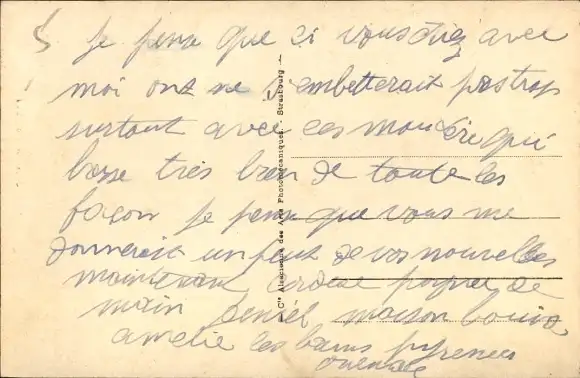 je pense que si vous étiez avec
moi ont ne s'embetterait pas trop
surtout avec ces mou qui
basse très bien de toute les
façon je pense que vous me
donnerait un peut de vos nouvelles
maintenant cordiale poignee de
main maison Louis
amelie les bains pyrenees
orientale
— Cie Alsacienne des Arts Photomécaniques - Strasbourg —